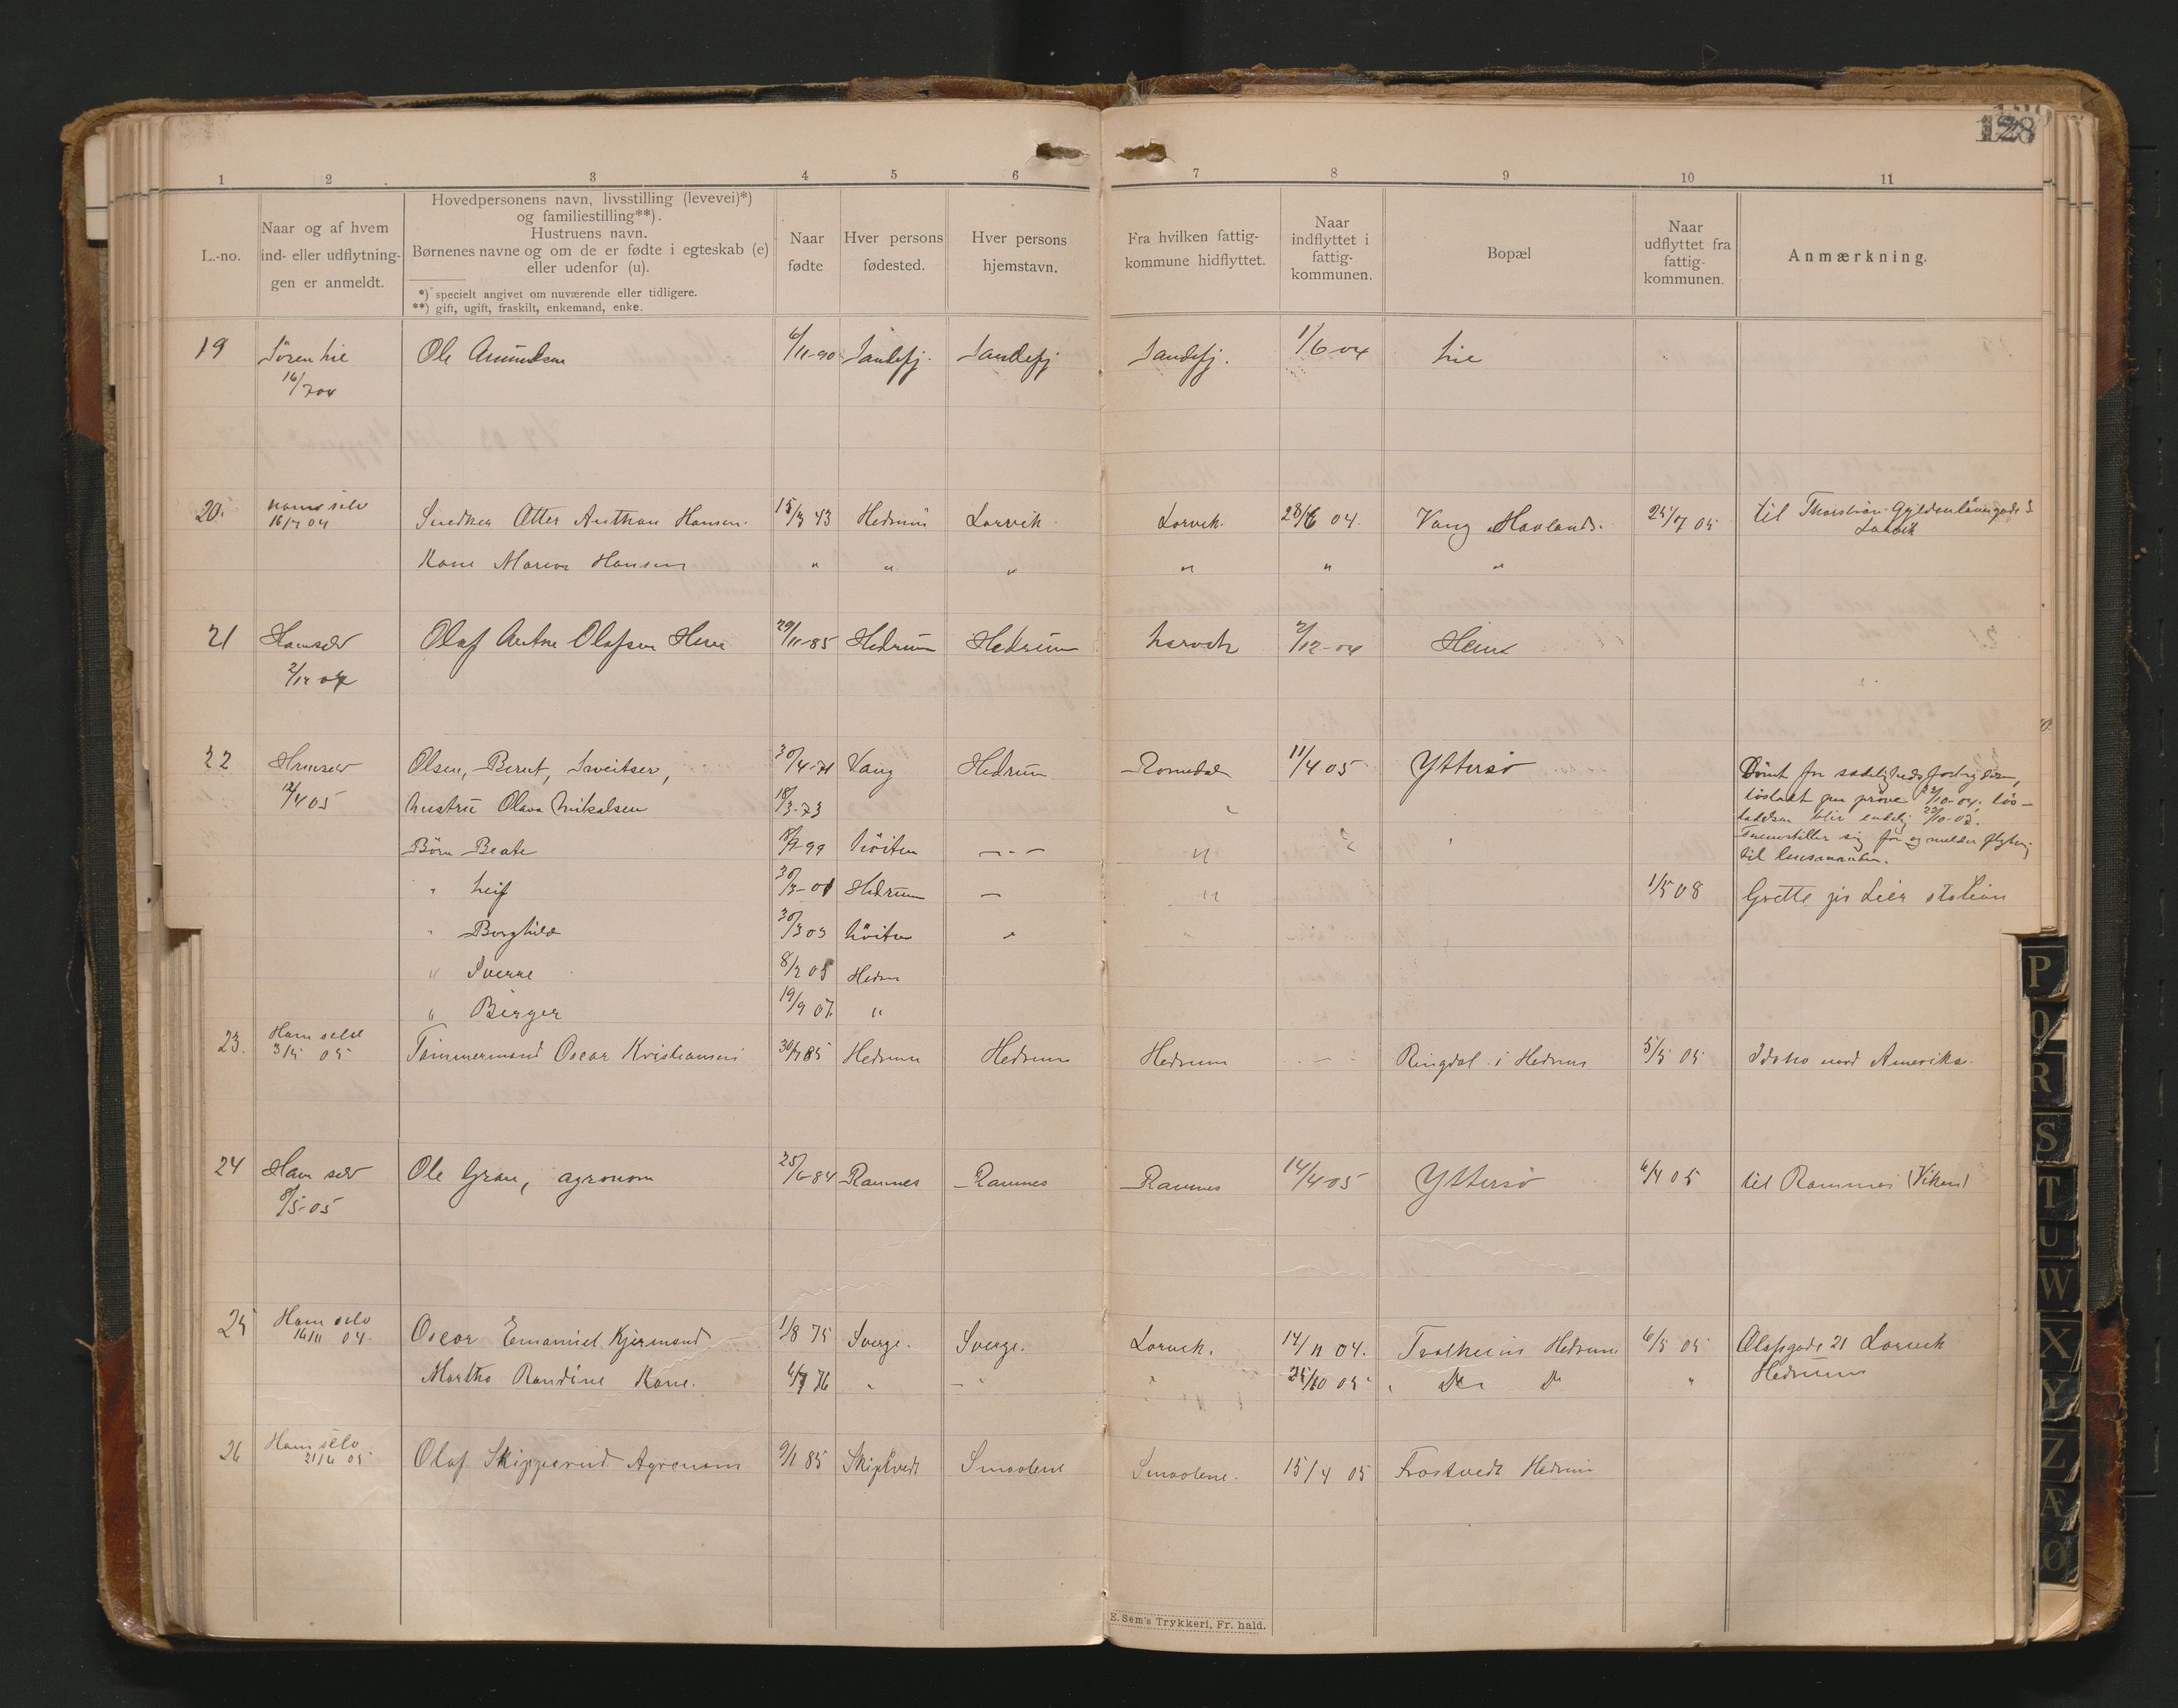 128
1 2 3 4 5 6 7 8 9 10 11
L.-no.
Naar og af hvem
ind- eller udflytning-
gen er anmeldt.
Hovedpersonens navn, livsstilling (levevei)*)
og familiestilling**).
Hustruens navn.
Børnenes navne og om de er fødte i egteskab (e)
eller udenfor (u).
*) specielt angivet om nuværende eller tidligere.
**) gift, ugift, fraskilt, enkemand, enke.
Naar
fødte
Hver persons
fødested.
Hver persons
hjemstavn.
Fra hvilken fattig-
kommune hidflyttet.
Naar
indflyttet i
fattig-
kommunen.
Bopæl
Naar
udflyttet fra
fattig-
kommunen.
Anmærkning.
19 Sören Lie Ole Amundsen 6/11-90 Sandefj. Sandefj Sandefj. 1/6-04 Lie
16/7 04
20. Ham selv Snedker Otter Anthon Hansen. 15/3 43 Hedrum Larvik. Larvik. 28/6 04. Vang Havlands. 25/7 05 til Gyldenlövesgade 5
16/7 04 Larvik
Kone Maren Hansen " " " " " "
21 Hamselv Olaf Olafsen 29/11-85 Hedrum Hedrum Larvik 2/12-04
2/12 04
22 Hamselv Olsen, Bernt, Sveitser, 30/4-71 Vang Hedrum Romedal 11/4 05 Yttersö
12/4 05 hustru Olava Mikalsen 18/3-73 "
Dömt for sædelighedsforbrydelse,
lösladt paa pröve 22/10-04. lös-
ladelsen blir endelig
til lensmanden.
Börn Beate Höiten — " — "
" Leif 30/3-01 Hedrum — " 1/5 08 Grette pr Lier station
" Borghild 30/3 03 Höiten " "
" Sverre 8/2 05 Hedrum
" Birger 19/9 07. "
23. Ham selv Tömmermand Oscar Kristiansen 30/7 85 Hedrum Hedrum Hedrum — Ringdal i Hedrum 5/5 05 Idaho nord Amerika.
3/5 05
24 Ham selv Ole Gran, agronom 25/6-84 Ramnes Ramnes Ramnes 14/4-05 Yttersö 6/4 05 til Ramnes (Viken)
8/5-05
25 Ham selv Oscar Emanuel Kjermand 1/8 75 Sverge. Sverge. Larvik. 14/11 04. Hedrum 6/5 05 Olafsgade 21 Larvik
16/11 04.
Martha Randine Kone. 4/7 76 " — " 25/10 05 " Do Do " Hedrum
26 Ham selv Olaf Skipperud Agronom 9/1 85 Skiptvedt Smaalene Smaalene. 15/4 05 Frostvedt Hedrum
21/6 05
E. Sem's Trykkeri, Fr. hald.
P
Q
R
S
T
U
W
X
Y
Z
Æ
Ø